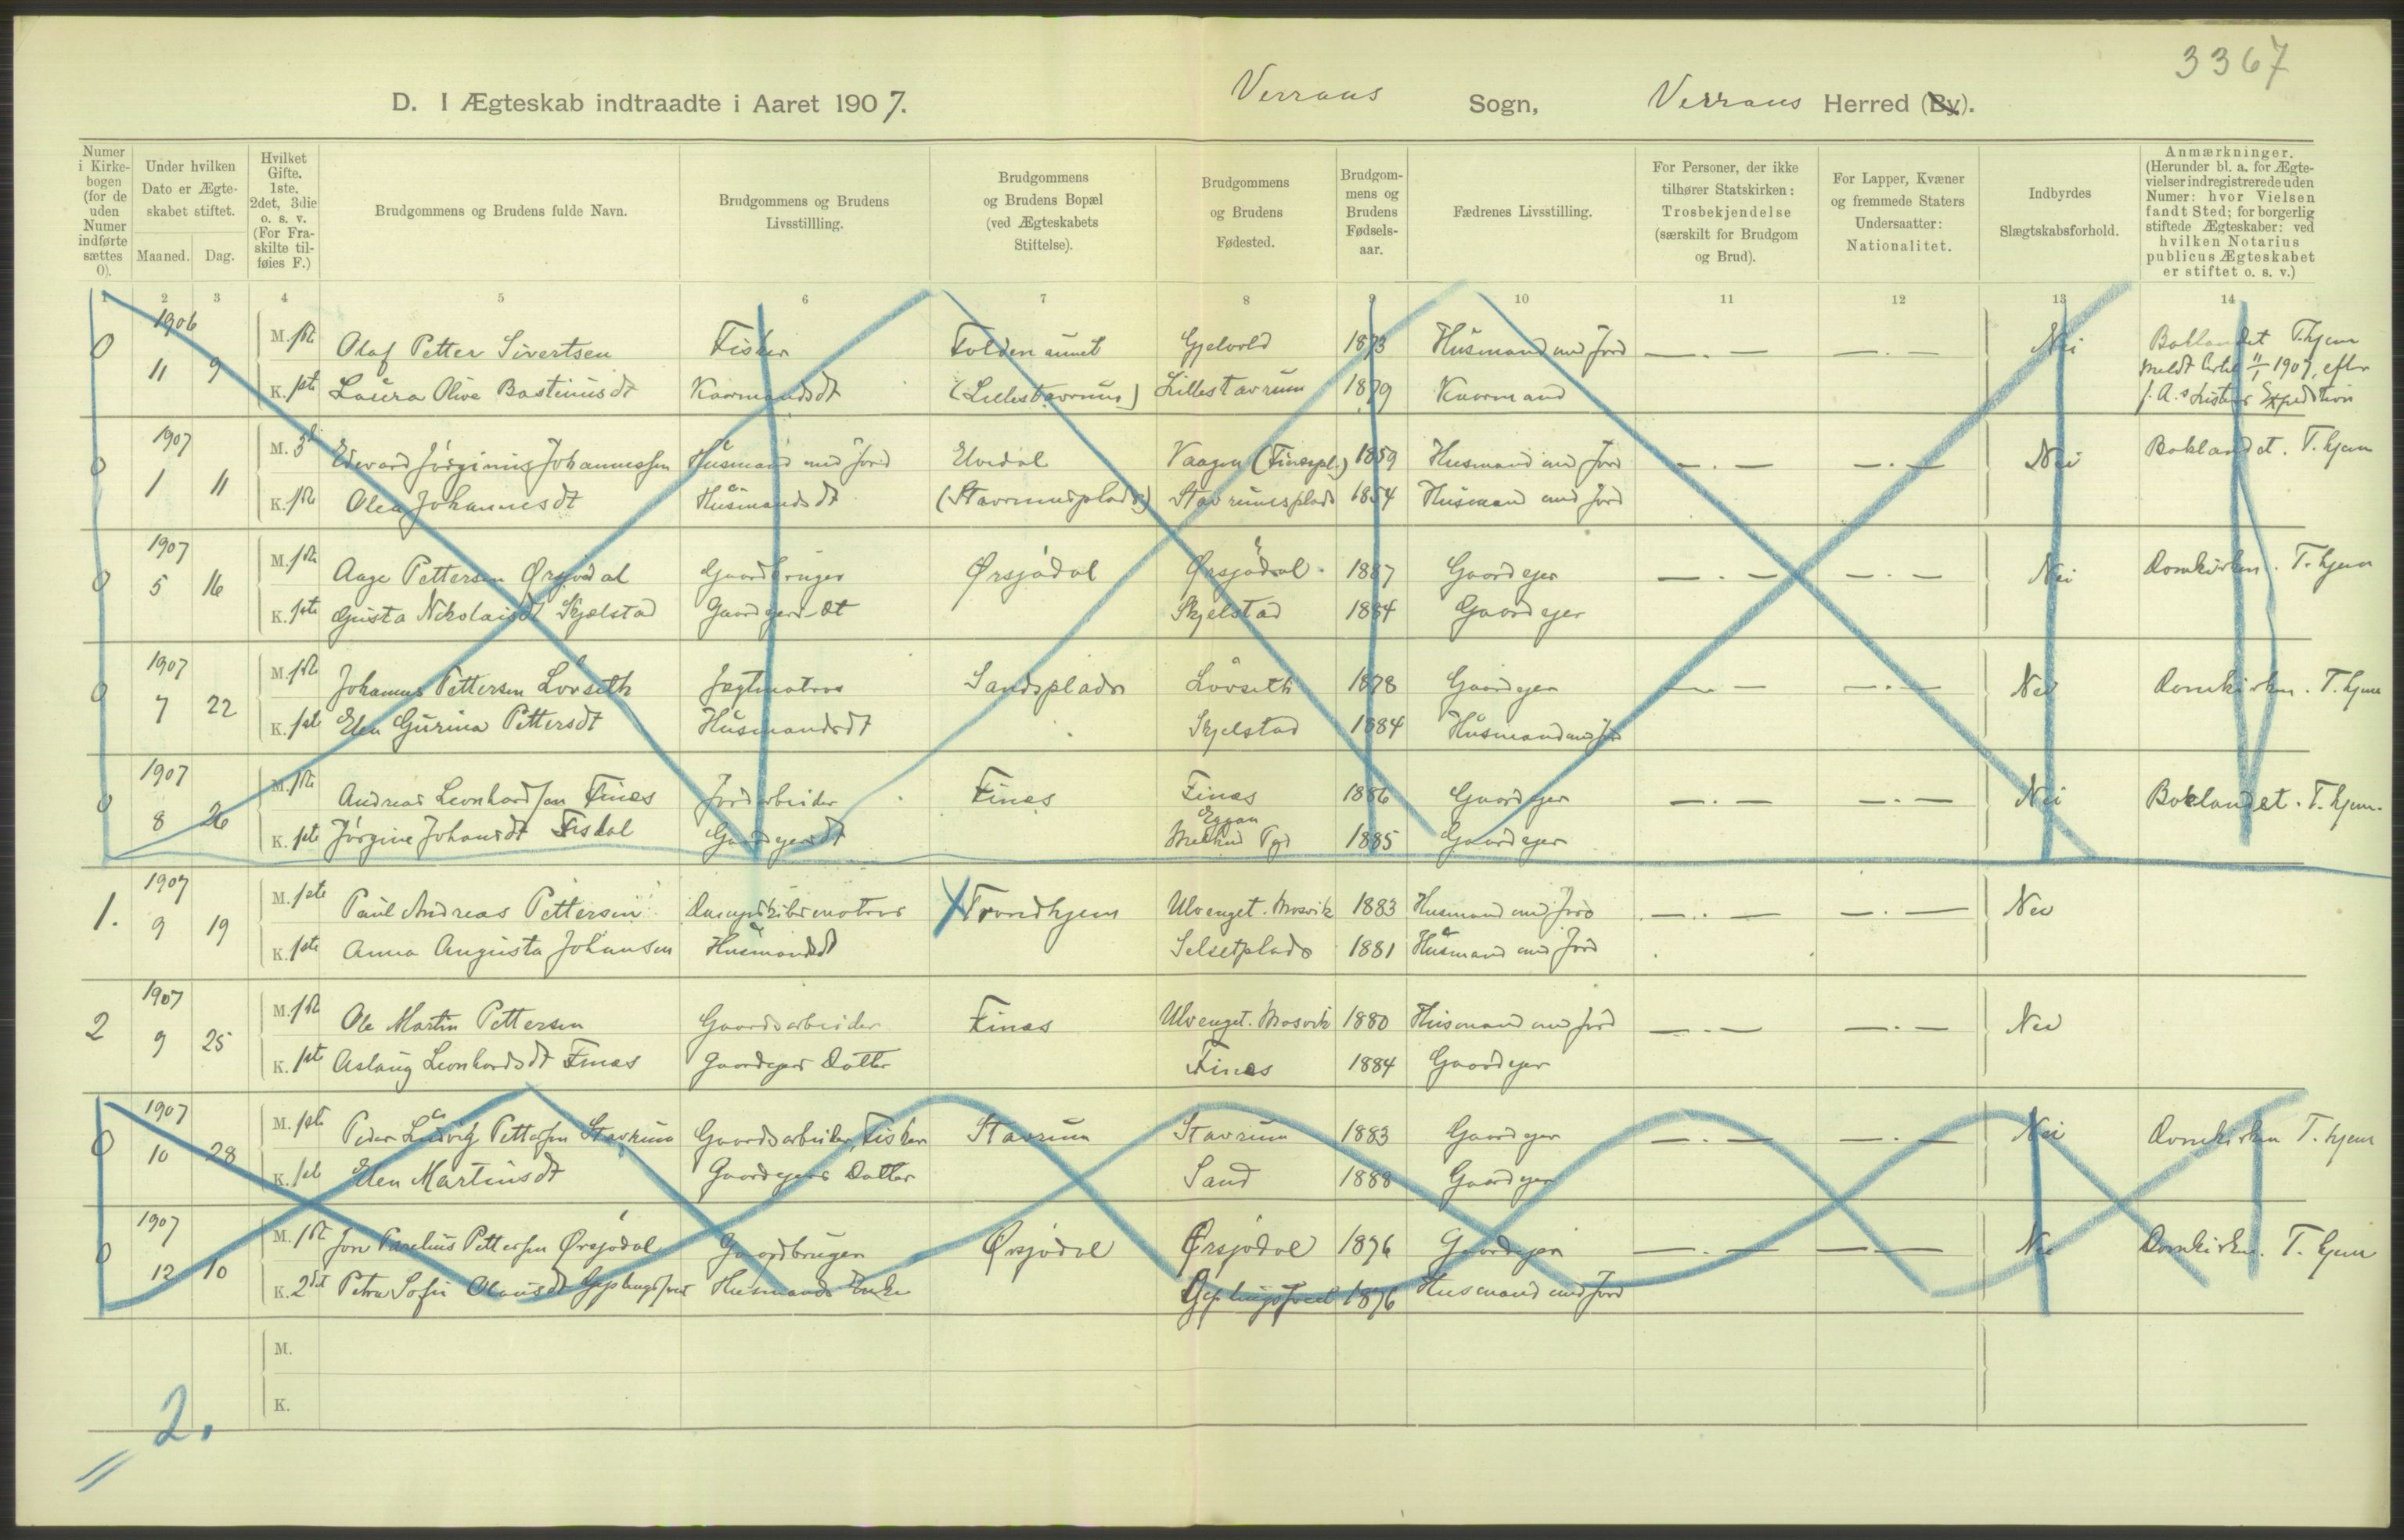 3367
D. I Ægteskab indtraadte i Aaret 1907. Verrans Sogn, Verrans Herred (By).
Numer i Kirkebogen (for de uden Numer indførte sættes 0).
Under hvilken Dato er Ægteskabet stiftet.
Maaned. Dag.
Hvilket Gifte. 1ste. 2det, 3die o. s. v. (For Fraskilte tilføies F.)
Brudgommens og Brudens fulde Navn.
Brudgommens og Brudens Livsstillling.
Brudgommens og Brudens Bopæl (ved Ægteskabets Stiftelse).
Brudgommens og Brudens Fødested.
Brudgommens og Brudens Fødselsaar.
Fædrenes Livsstilling.
For Personer, der ikke tilhører Statskirken: Trosbekjendelse (særskilt for Brudgom og Brud).
For Lapper, Kvæner og fremmede Staters Undersaatter: Nationalitet.
Indbyrdes Slægtskabsforhold.
Anmærkninger. (Herunder bl. a. for Ægtevielser indregistrerede uden Numer: hvor Vielsen fandt Sted; for borgerlig stiftede Ægteskaber: ved hvilken Notarius publicus Ægteskabet er stiftet o. s. v.)
1 2 3 4 5 6 7 8 9 10 11 12 13 14
1906
0 11 9 M. 1ste Olaf Petter Sivertsen Fisker Folden Gjelvold 1873 Husmand med Jord — . — — . — Nei Baklandet T.hjem
K. 1ste Laura Olive Bastiniusdt Kaarmandsdt (Lillestavrum) Lillestavrum 1879 Kaarmand
1907
0 1 11 M. 3d Edvard Jørginius Johannessen Husmand med Jord Elvedal Vaagen (Finespl.) 1859 Husmand med Jord — . — — . — Nei Baklandet. T.hjem
K. 1ste Olea Johannesdt Husmandsdt (Stavrumsplads) Stavrumsplads 1854 Husmand med Jord
1907
0 5 16 M. 1ste Aage Pettersen Ørsjødal Gaardbruger Ørsjødal Ørsjødal 1887 Gaardejer — . — — . — Nei Domkirken. T.hjem
K. 1ste Gusta Nikolaisdt Skjelstad Gaardejers dt Skjelstad 1884 Gaardejer
1907
0 7 22 M. 1ste Johannes Pettersen Løvseth Jægtmatros Sandsplads Løvseth 1878 Gaardejer — . — — . — Nei Domkirken. T.hjem
K. 1ste Elen Gurina Pettersdt Husmandsdt Skjelstad 1884 Husmand med Jord
1907
0 8 26 M. 1ste Andreas Leonhardsen Fines Jordarbeider Fines Fines 1886 Gaardejer — . — — . — Nei Baklandet. T.hjem.
K. 1ste Jørgine Johansdt Gaardejersdt Eggan 1885 Gaardejer
1907
1. 9 19 M. 1ste Paul Andreas Pettersen Dampskibsmatros Trondhjem Ulvenget. Mosvik 1883 Husmand med Jord — . — — . — Nei
K. 1ste Anna Augusta Johansen Husmandsdt Selsetplads 1881 Husmand med Jord
1907
2 9 25 M. 1ste Ole Martin Pettersen Gaardsarbeider Fines Ulvenget. Mosvik 1880 Husmand med Jord — . — — . — Nei
K. 1ste Aslaug Leonhardsdt Fines Gaardejers Datter Fines 1884 Gaardejer
1907
0 10 28 M. 1ste Peder Ludvig Pettersen Stavrum Gaardsarbeider, Fisker Stavrum Stavrum 1883 Gaardejer — . — — . — Nei Domkirken T.hjem
K. 1ste Elen Martinsdt Gaardejers Datter Sand 1888 Gaardejer
1907
0 12 10 M. 1ste Pettersen Ørsjødal Gaardbruger Ørsjødal Ørsjødal 1876 Gaardejer — . — — . — Nei Domkirken. T.hjem
K. 2det Petra Sofie Olausdt Husmands Enke 1876 Husmand med Jord
M.
K.
2.